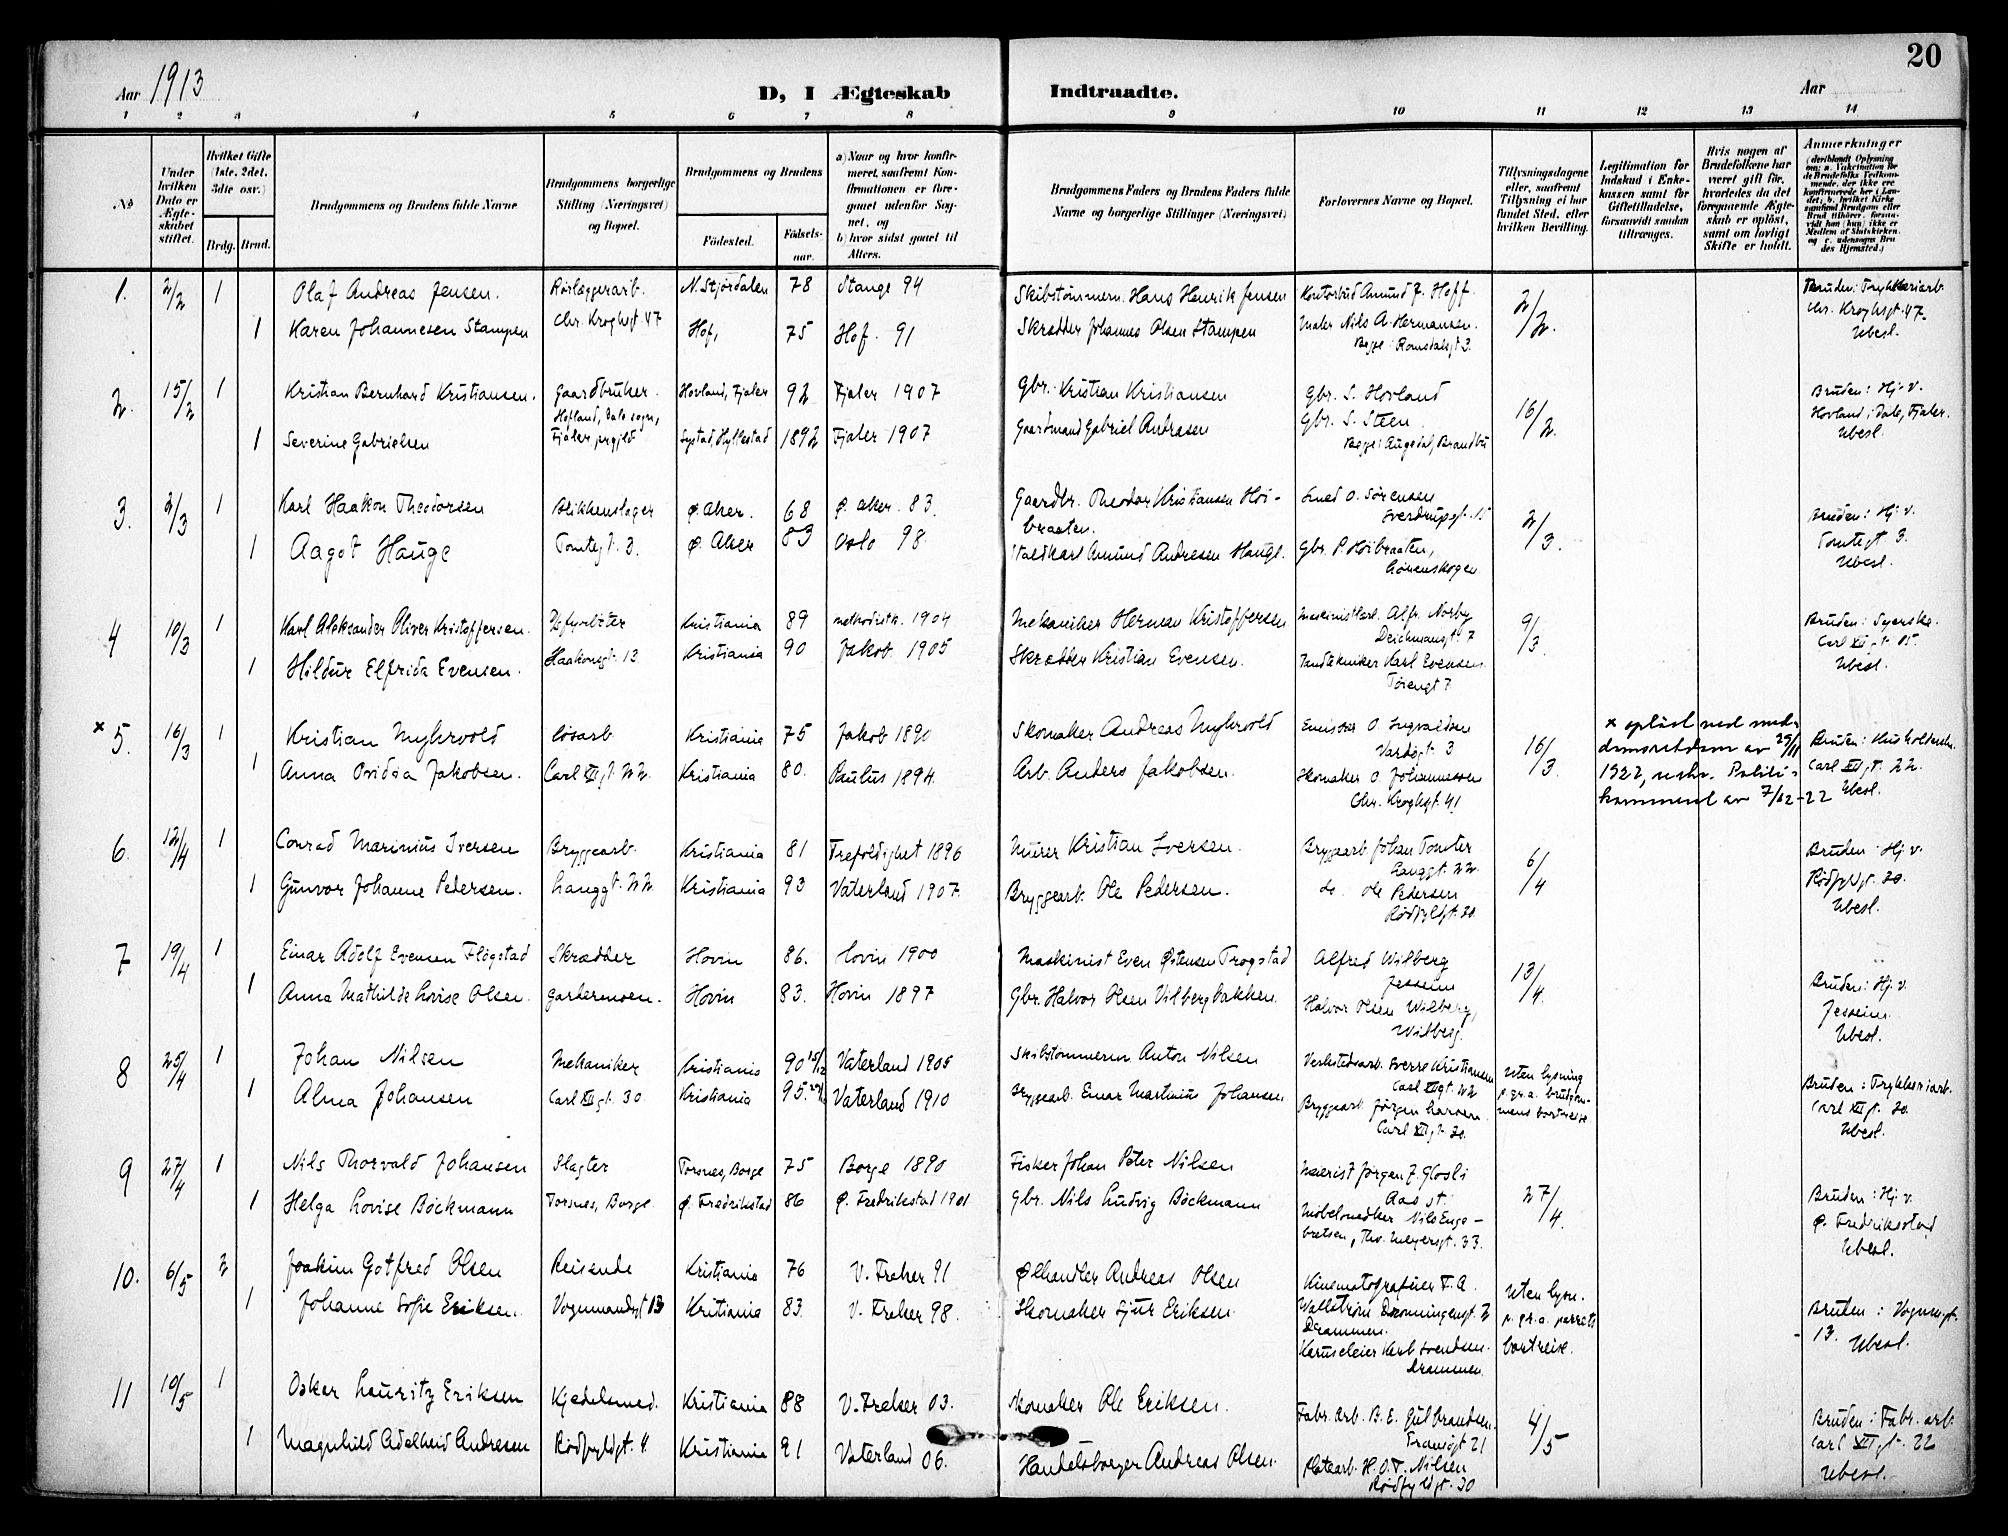 20
Aar 1913
D, I Ægteskab Indtraadte.
Aar
1 2 3 4 5 6 7 8 9 10 11 12 13 14
No
Under hvilken Dato er Ægteskabet stiftet.
Hvilket Gifte (1ste, 2det, 3die osv.)
Brdg. Brud.
Brudgommens og Brudens fulde Navne
Brudgommens borgerlige Stilling (Næringsvei) og Bopæl.
Brudgommens og Brudens
Fødested. Fødselsaar.
a) Naar og hvor konfirmeret, saafremt Konfirmationen er foregaaet udenfor Sognet, og
b) hvor sidst gaaet til Alters.
Brudgommens Faders og Brudens Faders fulde Navne og borgerlige Stillinger (Næringsvei)
Forlovernes Navne og Bopæl.
Tillysningsdagene eller, saafremt Tillysning ei har fundet Sted, efter hvilken Bevilling.
Legitimation for Indskud i Enkekassen samt for Giftetilladelse, forsaavidt saadan tiltrænges.
Hvis nogen af Brudefolkene har været gift før, hvorledes da det foregaaende Ægteskab er opløst, samt om lovligt Skifte er holdt.
Anmærkninger
1. 2/2 1 Olaf Andreas Jensen. Rørlæggerarb. N. Stjørdalen 78 Stange 94 Skibstømmerm. Hans Henrik Jensen Kontorbud Amund J. Hoff. 2/2 Bruden: Trykkeriarb.
Chr. Kroghsgt 47 Chr. Kroghsgt. 47.
1 Karen Johannesen Stampen Hof, 75 Hof. 91 Skrædder Johannes Olsen Stampen Maler Nils A. Hermansen. Ubesl.
Begge: Romsdalsgt 3.
2. 15/2 1 Kristian Bernhard Kristiansen. Gaardbruker. Hovland, Fjaler 92 Fjaler 1907 Gbr. Kristian Kristiansen Gbr. S. Hovland 16/2. Bruden: Hj. v.
Hofland, Dale sogn, Gbr. S. Steen. Hovland, Dale, Fjaler.
1 Severine Gabrielsen Fjaler prgjld Systad, Hyllestad 1892 Fjaler 1907 Gaardmand Gabriel Andrasen Begge: Augedal, Brandbu Ubesl.
3. 2/3 1 Karl Haakon Theodorsen Blikkenslager Ø. Aker. 68 Ø. Aker. 83. Gaardbr. Theodor Kristiansen Høibraaten. Smed O. Sørensen 2/3. Bruden: Hj. v.
Sverdrupsgt. 15 Tomtegt 3.
1 Aagot Hauge Tomtegt. 3. Ø. Aker 83 Oslo 98. Staldkarl Amund Andresen Hauge. Gbr. P. Høibraaten, Ubesl.
4 10/3 1 Karl Aleksander Oliver Kristoffersen. Kristiania 89 methodistk. 1904 Mekaniker Herman Kristoffersen Maskinistkarl. Alfr. Norby 9/3. Bruden: Syerske.
Deichmansgt. 7 Carl XII gt. 05.
1 Hildur Elfrida Evensen. Haakonsgt. 13 Kristiania 90 Jakob. 1905 Skrædder Kristian Evensen. Tandtekniker Karl Evensen Ubesl.
x 5. 16/3 1 Kristian Myhrvold Løsarb Kristiania 75 Jakob 1890 Skomaker Andreas Myhrvold Emissær O. Ingvaldsen 16/3 Bruden: Husholderske.
Vardegt. 3 Carl XII gt. 22.
1 Anna Ovidia Jakobsen. Carl XII gt. 22. Kristiania 80. Paulus 1894. Arb. Anders Jakobsen. Skomaker O. Johannessen Ubesl.
Chr. Kroghsgt. 41
x opløst ved
av 29/11
1922,
av 7/12-22
6. 12/4 1 Conrad Marinius Iversen Bryggearb. Kristiania 81 Trefoldighet 1896 Murer Kristian Iversen. Bryggearb. Johan Tomter 6/4 Bruden: Hj v.
Langgt. 22 Rødfyldgt. 20.
1 Gunvor Johanne Pedersen. Langgt. 22 Kristiania 93 Vaterland 1907. Bryggearb. Ole Pedersen. do. Ole Pedersen Ubesl.
Rødfyldgt. 20.
7 19/4 1 Einar Adolf Evensen Fløgstad Skrædder Hovin 86. Hovin 1900 Maskinist Even Østensen Trogstad Alfred Wilberg 13/4. Bruden: Hj. v.
Jessum Jessum.
1 Anna Mathilde Lovise Olsen. Gardermoen. Hovin 83. Hovin 1897 Gbr. Halvor Olsen Vilbergbakken. Halvor Olsen Wilberg, Ubesl.
Wilberg.
8 25/4 1 Johan Nilsen Mekaniker Kristiania 90 15/12 Vaterland 1905 Skibstømmerm Anton Nilsen Verkstedsarb. Sverre Kristiansen Uten lysning Bruden: Trykkeriarb.
Carl XII gt. 22 p. gr. a. brudgommens bortreise Carl XII gt. 20.
1 Alma Johansen Carl XII gt. 30. Kristiania 95. Vaterland 1910 Bryggearb. Einar Martinius Johansen Bryggearb. Jørgen Larsen. Ubesl.
Carl XII gt. 20.
9 27/4 1 Nils Thorvald Johansen Slagter Torsnes, Borge 75 Borge 1890 Fisker Johan Peter Nilsen Meierist Jørgen J. Glosli 27/4. Bruden: Hj. v.
Aas st. Ø. Fredriksstad
1 Helga Lovise Böckmann Torsnes, Borge Ø. Fredrikstad 86 Ø. Fredrikstad 1901 Gbr. Nils Ludvig Böckmann Møbelsnedker Nils Engebretsen, Th. Meyersgt. 33. Ubesl.
10. 6/5 2 Joakim Gotfred Olsen Reisende Kristiania 76 V. Fraker 91 Ølhandler Andreas Olsen Kinematografeier F. A. Wallström Dronningengt. 2 Drammen. Uten lysn. p. gr. a. parrets bortreise. Bruden: Vognmgt.
1 Johanne Sofie Eriksen. Vognmandsgt 13 Kristiania 83. V. Fraker 98. Skomaker Sjur Eriksen. Karuseleier Karl Svendsen. 13. Ubesl.
Drammen
11 10/5 1 Oskar Lauritz Eriksen Kjedelsmed. Kristiania 88 V. Fraker 03. Skomaker Ole Eriksen. Fabr. Arb. B. E. Gulbrandsen. 4/5 Bruden: Fabr. arb.
Transgt 21 Carl XII gt. 22
1 Magnhild Adelheid Andresen Rødfyldgt. 4. Kristiania 91 Vaterland 06. Handelsborger Andreas Olsen. Platearb. H. O. T. Nilsen Ubesl.
Rødfyldgt. 30